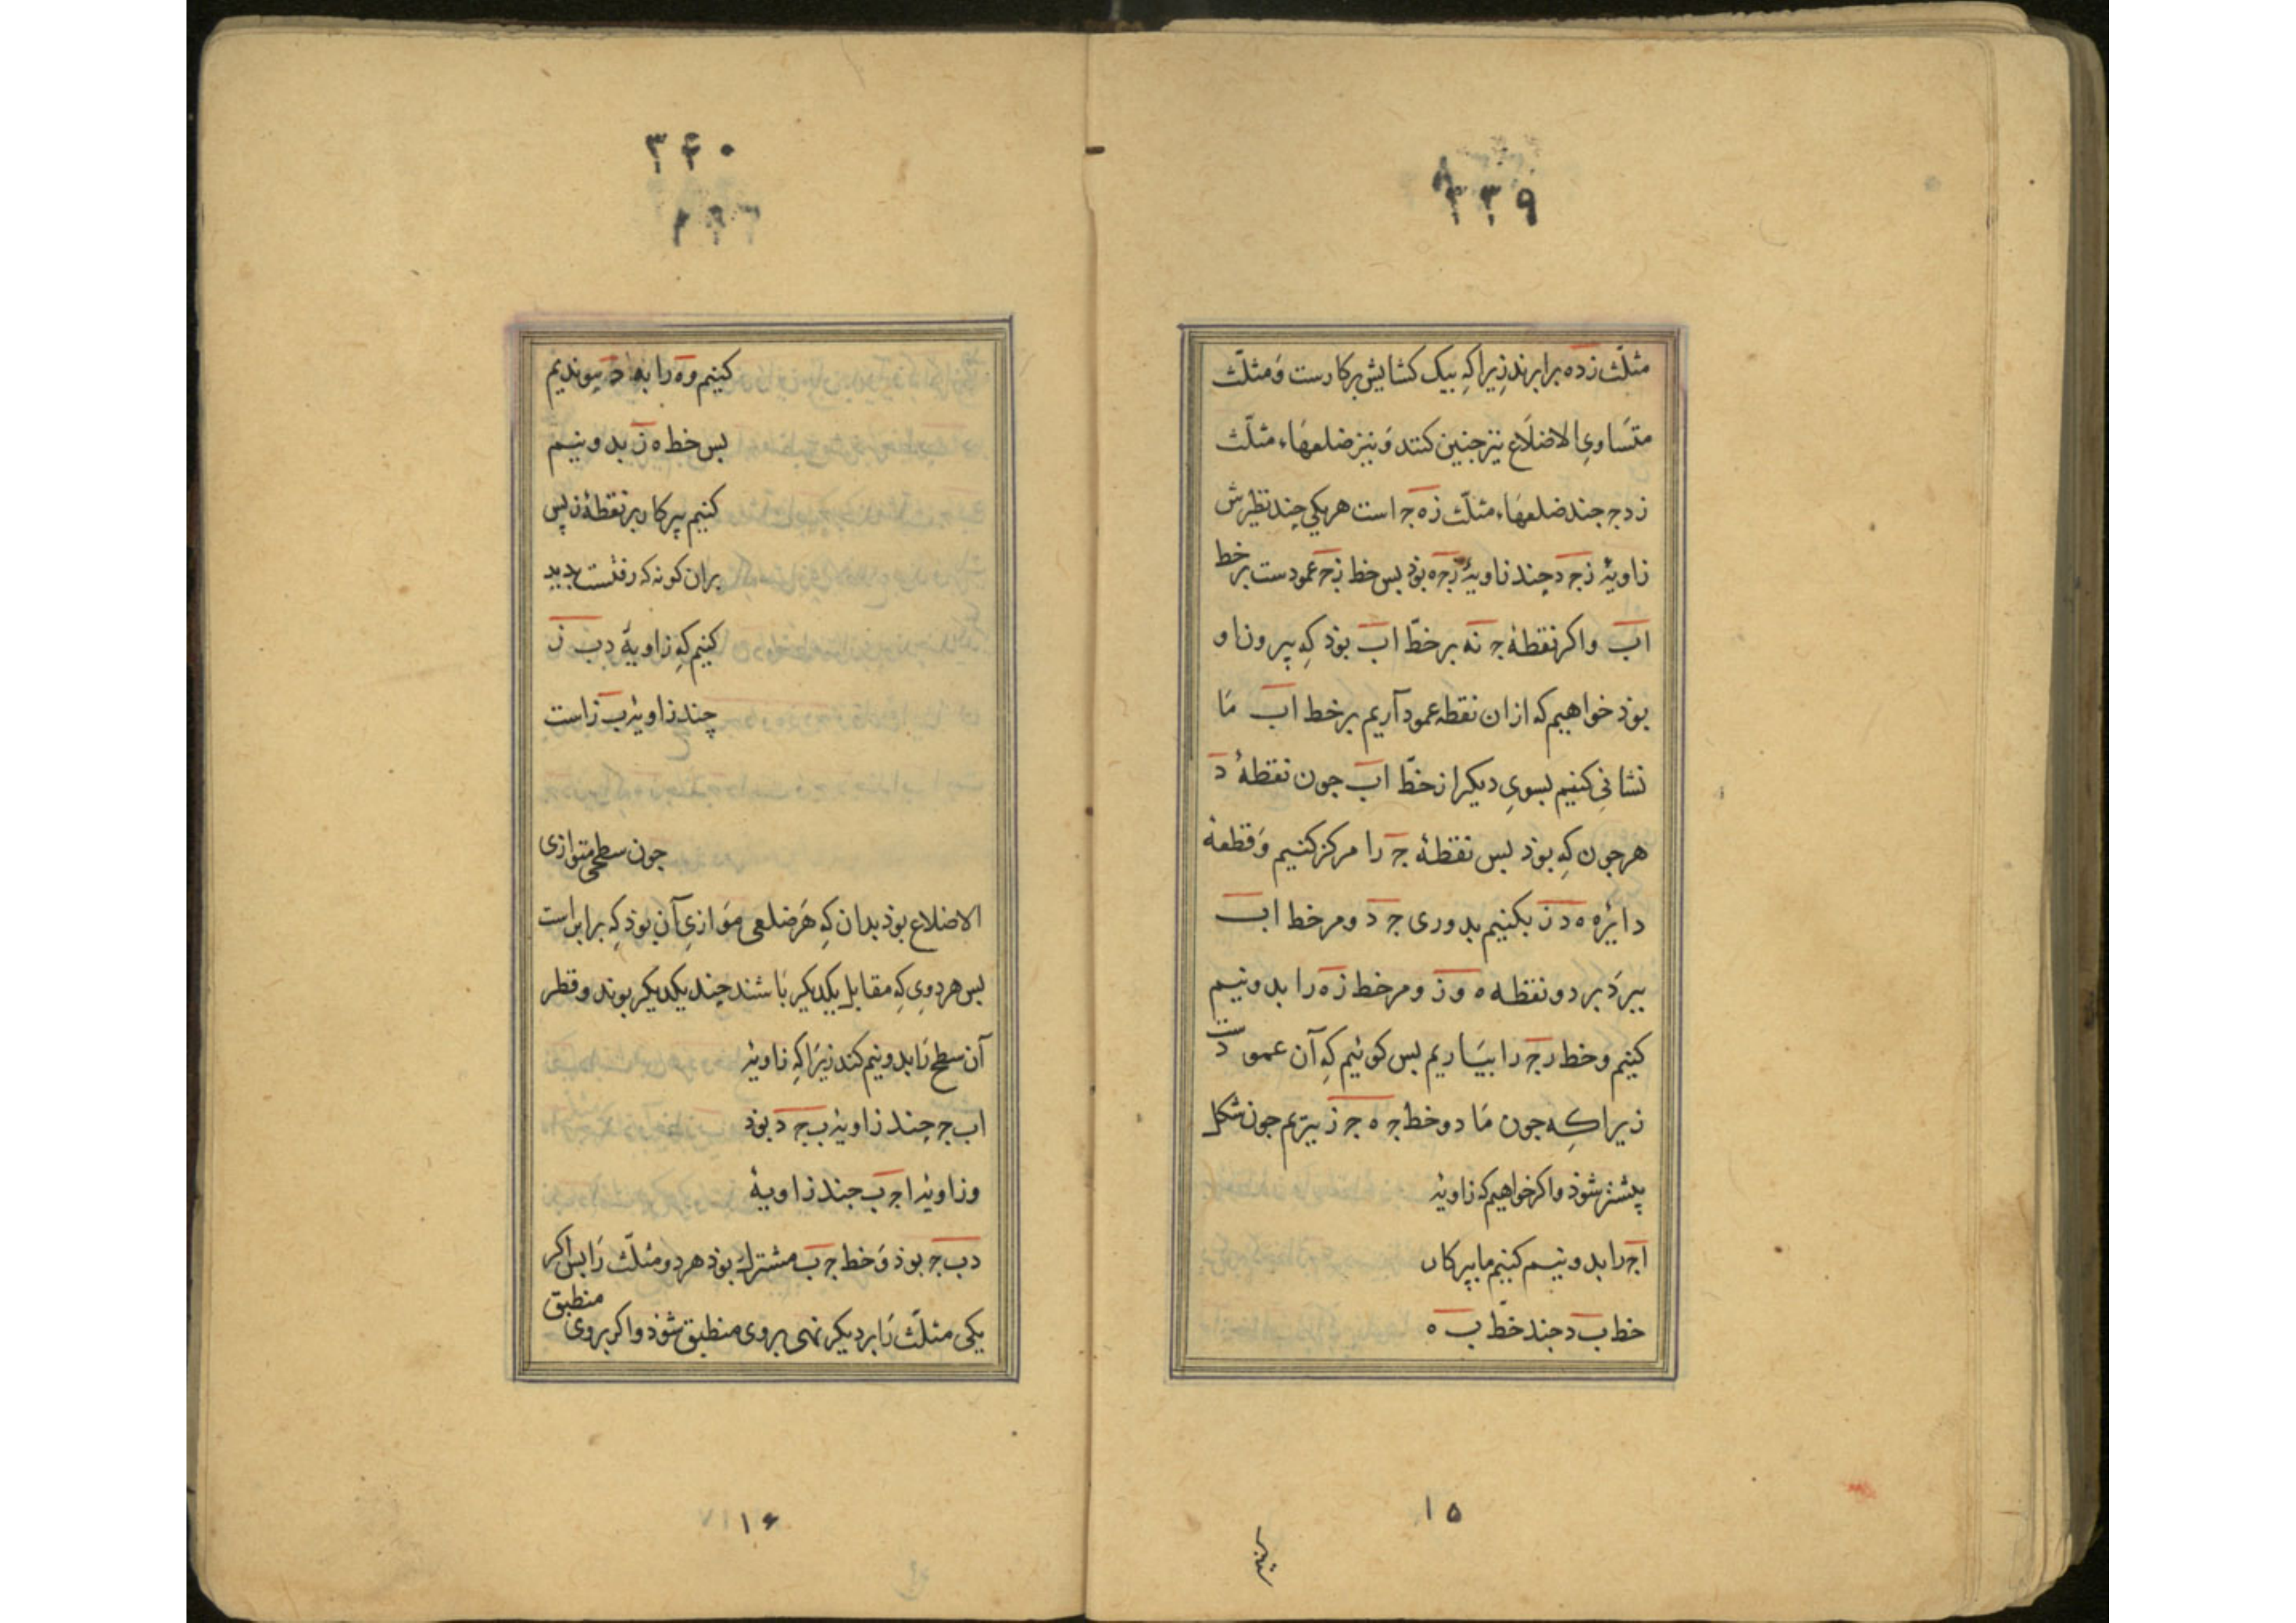 ۳۳۹
مثلّث زده برابرند زیرا کِه بیک کشایش پرکارست وَمثلّث
متسَاویِ الاضلَاع نیز جنین کنند وَنیز ضلعهَاء مثلّث
زدج جند ضلعهَاء مثلّث زه ج است هریکی چند نظیرش
زاویهٔ زج د چند زاویهٔ زج ه بوذ بس خط زج عمودست بر خط
اب واکر نقطهٔ ج نه بر خطّ اب بوذ کِه بیرون او
بوذ خواهیم که ازان نقطه عمود آریم بر خط اب مَا
نشانی کنیم بسویِ دیکر از خطّ اب جون نقطهٔ د
هرجون کِه بوذ بس نقطهٔ ج را مرکز کنیم وَقطعهٔ
دایره ه د ز بکنیم بدوری ج د ومر خط اب
ببرَد بر دو نقطه ه و ز ومر خط زه را بدونیم
کنیم وخط رج را بیَاریم بس کوئیم کِه آن عمودست
زیرا کِه جون مَا دو خط ج ه ج ز ببرَیم جون شکل
پیشتر شوذ واکر خواهیم که زاویهٔ
اج را بدونیم کنیم ما بپرکار
خط ب د جند خطّ ب ه
۱۵
۳۴۰
کنیم وه را به د پیوندیم
بس خط ه ز بدونیم
کنیم پرکار بر نقطهٔ ز پس
بران کونه که رفتست بدید
کنیم کِه زاویهٔ دب ز
چند زاویهٔ ب ز است
جون سطحی متوازی
الاضلاع بوذ بدان کِه هَر ضلعی موَازیِ آن بوذ کِه برابر است
بس هر دویِ کِه مقابل یکدیکر بَاشند چند یکدیکر بوند وقطر
آن سطح رَا بدونیم کند زیرَا کِه زاویهٔ
اب ج چند زاویهٔ ب ج د بوذ
وزاویهٔ اج ب جند زاویهٔ
دب ج بوذ وَخط ج ب مشترك بوذ هر دو مثلّث رَا بس اکر
یکی مثلّث رَا بر دیکر نهی بروی منطبق شوذ واکر بروی منطبق
۱۶